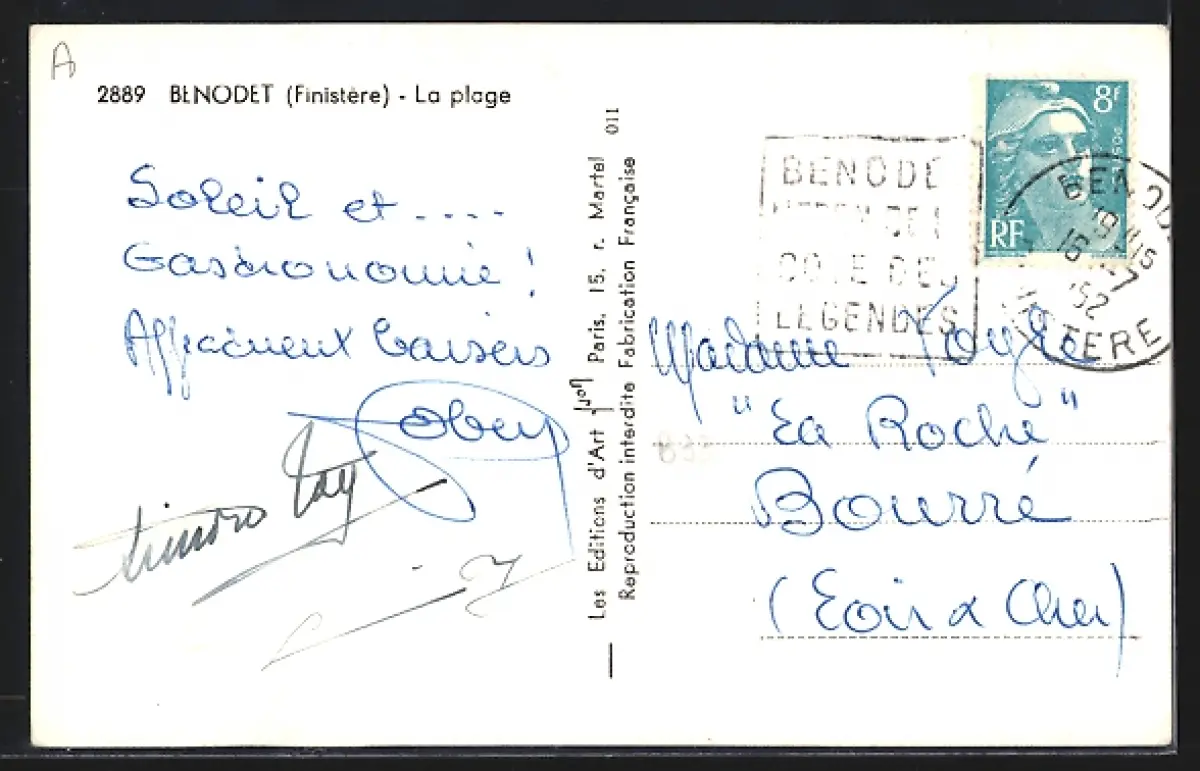 A
2889 BENODET (Finistère) - La plage
Soleil et ....
Gastronomie !
Affectueux baisers
Les Editions d'Art Yvon Paris, 15, r. Martel 011
Reproduction interdite Fabrication Française
8F
RF
BENODE
COTE DE
LEGENDES
BENOD
19 15
16 - 7
52
TERE
Madame
"La Roche"
Bourré
(Loir & Cher)